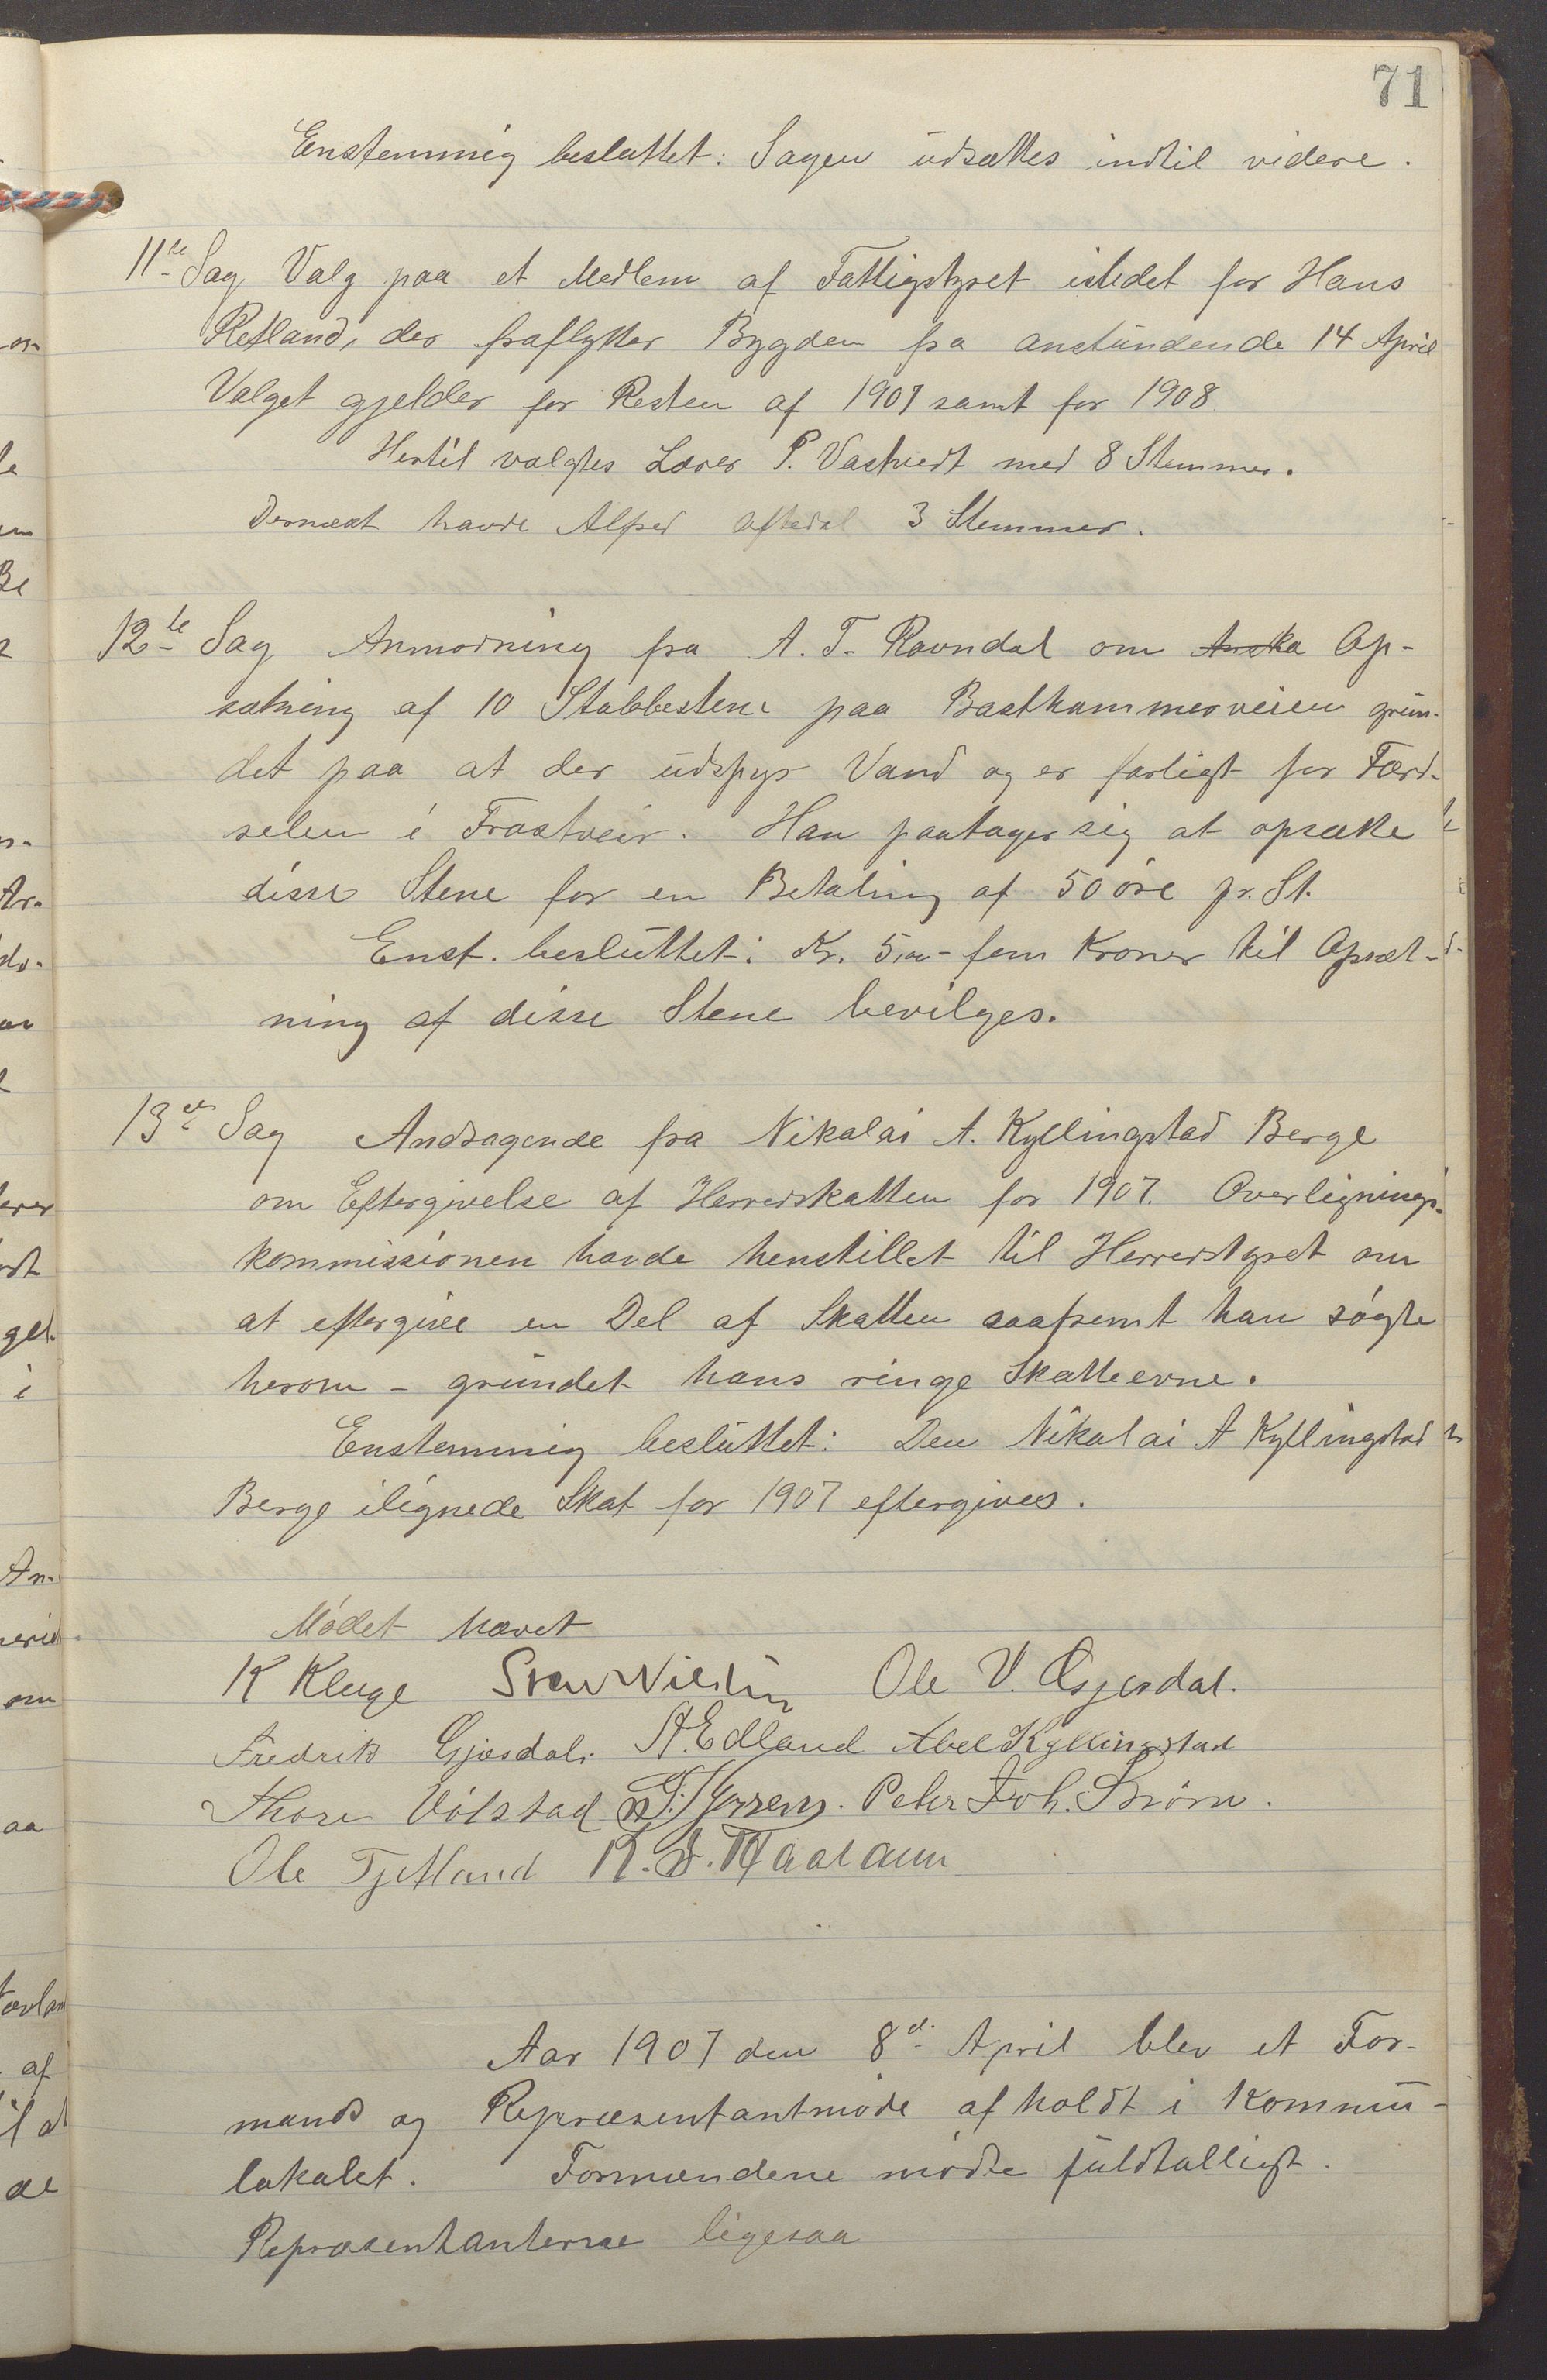 71
Enstemmig besluttet: Sagen udsættes indtil videre.
11te Sag Valg paa et Medlem af Fattigstyret istedet for Hans
Retland, der fraflytter Bygden fra anstundende 14 April
Valget gjelder for Resten af 1907 samt for 1908
Hertil valgtes Lærer P. Vastvedt med 8 Stemmer.
Dernæst havde Alfred Oftedal 3 Stemmer.
12te Sag Anmodning fra A. T. Ravndal om Anska Op-
sætning af 10 Stabbestene paa Bastkammerveien grun-
det paa at der udspyr Vand og er farligt for Færd-
selen i Frostveir. Han paatager sig at opsætte
disse Stene for en Betaling af 50 øre pr. St.
Enst. besluttet: Kr. 5,00 - fem Kroner til Opsæt-
ning af disse Stene bevilges.
13de Sag Andragende fra Nikolai A. Kyllingstad Berge
om Eftergivelse af Herredskatten for 1907. Overlignings-
kommissionen havde henstillet til Herredstyret om
at eftergive en Del af Skatten saafremt han søgte
herom - grundet hans ringe Skatteevne.
Enstemmig besluttet: Den Nikolai A Kyllingstad
Berge ilignede Skat for 1907 eftergives.
Mødet hævet
K Kluge Ole V. Gjesdal.
Fredrik Gjesdal. A. Edland Abel Kyllingstad
Thore Vølstad Peter Joh.
Ole Tjetland K.
Aar 1907 den 8d April blev et For-
mands og Repræsentantmøde afholdt i Kommu-
lokalet. Formændene mødte fuldtalligt.
Repræsentanterne ligesaa